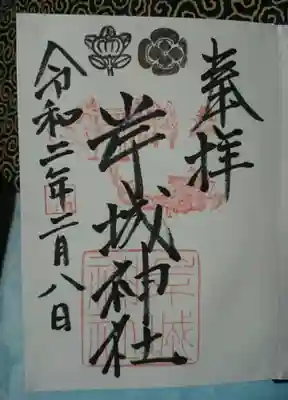 奉拝
岸城神社
令和二年二月八日
岸城神社